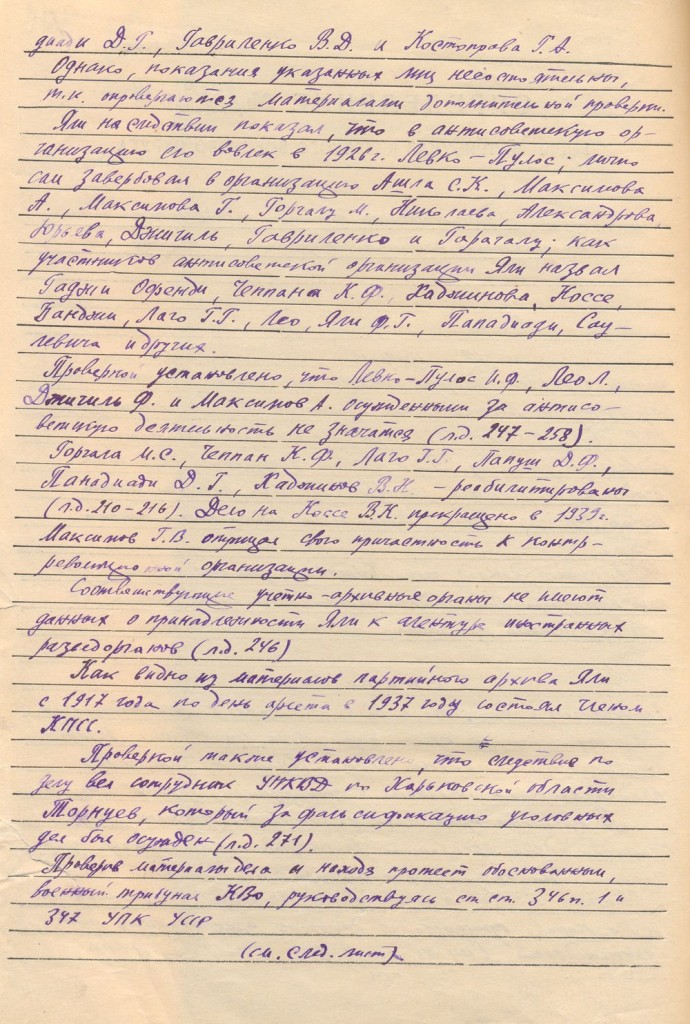 диади Д.Г., Гавриленко В.Д. и Костоправа Г.А.
Однако, показания указанных лиц несостоятельны,
т.к. опровергаются материалами дополнительной проверки.
Яли на следствии показал, что в антисоветскую ор-
ганизацию его вовлек в 1926г. Левко-Пулос; лично
сам завербовал в организацию Ашла С.К., Максимова
А., Максимова Г., Горгалу М., Николаева, Александрова,
Юрьева, Джичиль, Гавриленко и Гарагалу; как
участников антисоветской организации Яли назвал
Гаджи Офенди, Чеппана К.Ф., Хаджинова, Коссе,
Банджи, Лаго Г.Г., Лео, Яли Ф.Г., Пападиади, Сау-
левича и других.
Проверкой установлено, что Левко-Пулос И.Ф., Лео Л.,
Джичиль Ф. и Максимов А. осужденными за антисо-
ветскую деятельность не значатся (л.д. 247-258).
Горгала М.С., Чеппан К.Ф., Лаго Г.Г., Папуш Д.Ф.,
Пападиади Д.Г., Хаджинов В.Н. - реабилитированы
(л.д. 210-216). Дело на Коссе В.К. прекращено в 1939г.
Максимов Г.В. отрицал свою причастность к контр-
революционной организации.
Соответствующие учетно-архивные органы не имеют
данных о принадлежности Яли к агентуре иностранных
разведорганов (л.д. 246)
Как видно из материалов партийного архива Яли
с 1917 года по день ареста в 1937 году состоял членом
КПСС.
Проверкой также установлено, что следствие по
делу вел сотрудник УНКВД по Харьковской области
Торнуев, который за фальсификацию уголовных
дел был осужден (л.д. 271).
Проверив материалы дела и находя протест обоснованным,
военный трибунал КВО, руководствуясь ст.ст. 346 п. 1 и
347 УПК УССР
(см. след. лист)